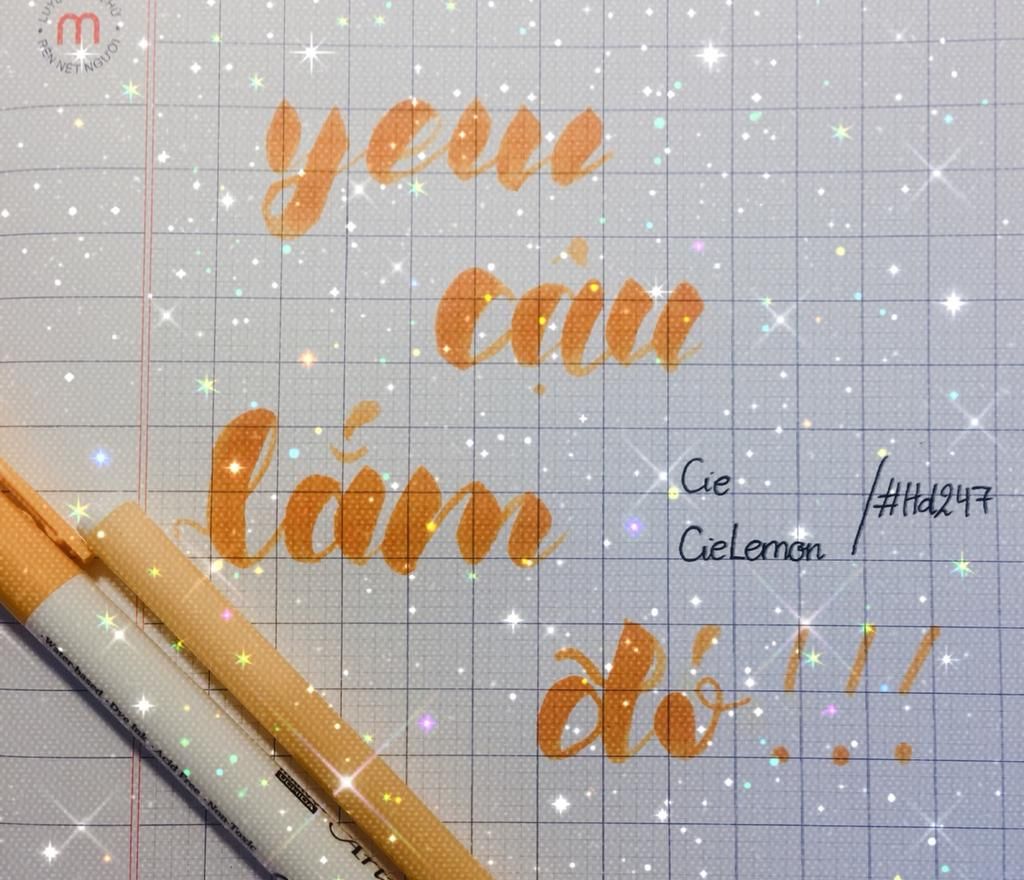 LUYỆN CHỮ
m
RÈN NẾT NGƯỜI
yeu
cậu
lắm
đó !!!
Cie
CieLemon
/#Hd247
· Water-based · Dye Ink · Acid Free · Non-Toxic